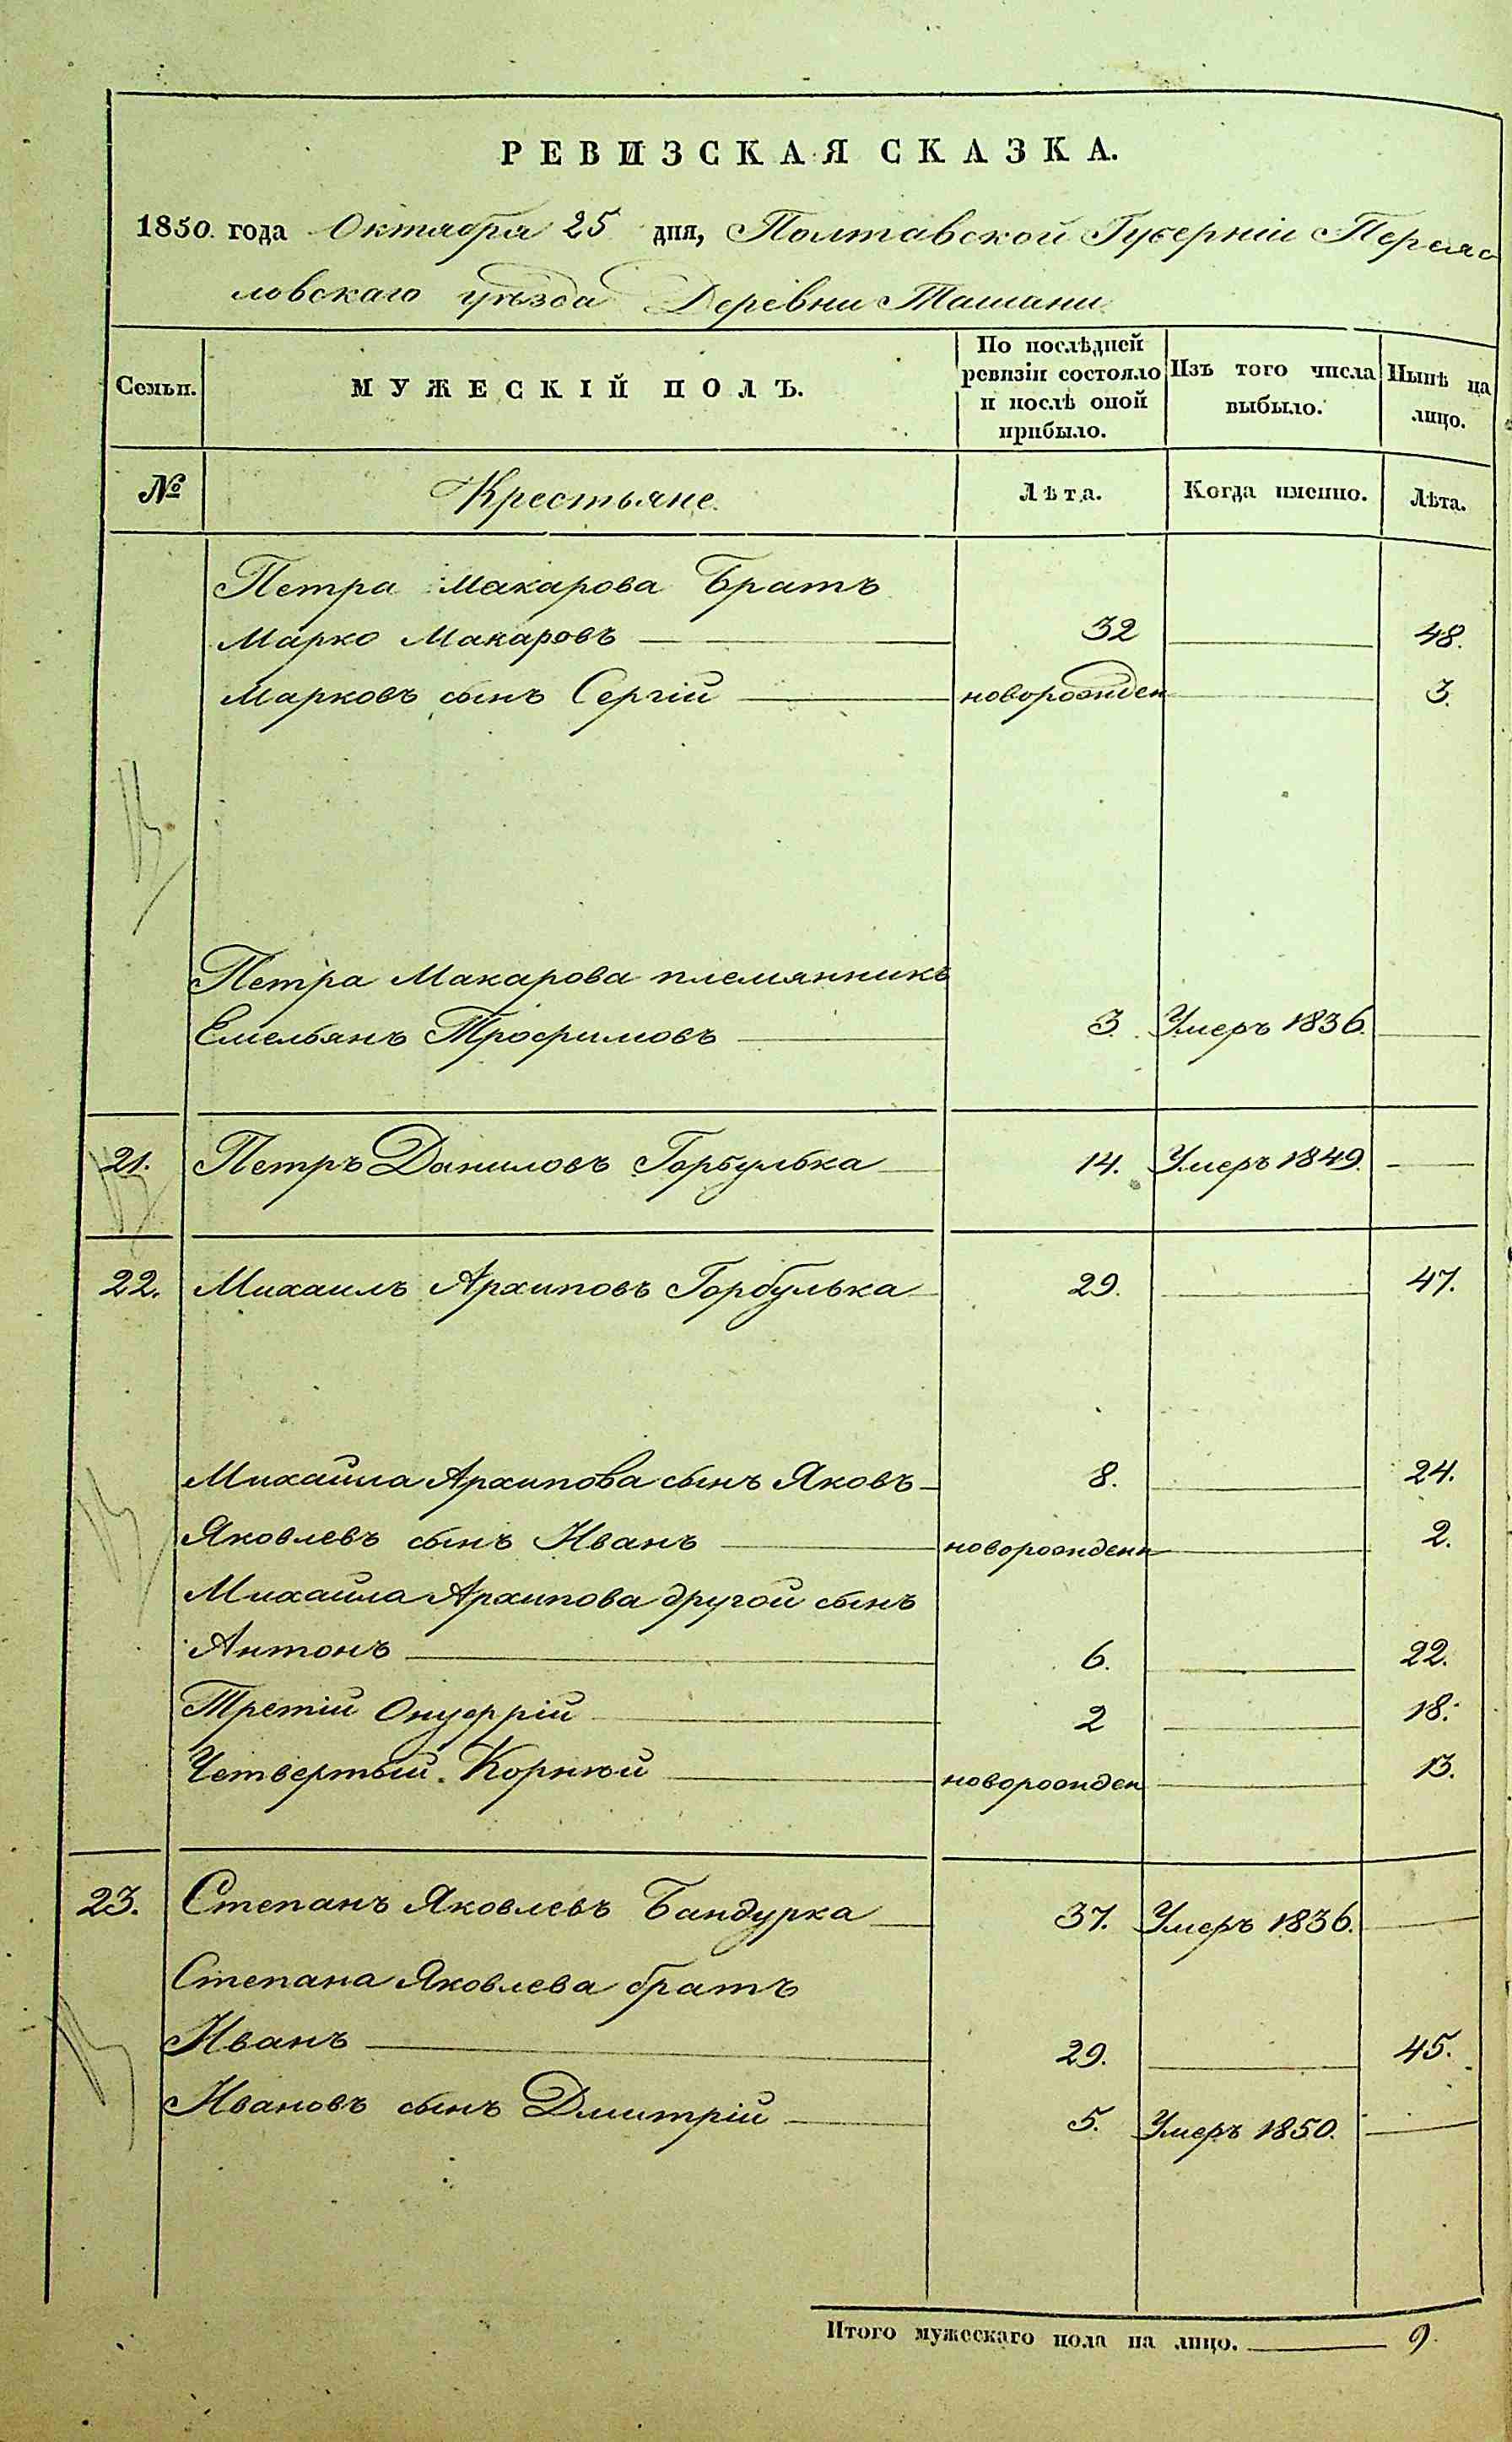 РЕВИЗСКАЯ СКАЗКА.
1850. года Октября 25 дня, Полтавской Губерніи Переяс
ловскаго уѣзда Деревни Ташани
Семьи. МУЖЕСКІЙ ПОЛЪ. По послѣдней ревизіи состояло и послѣ оной прибыло. Изъ того числа выбыло. Нынѣ на лицо.
№ Крестьяне. Лѣта. Когда именно. Лѣта.
Петра Макарова Братъ
Марко Макаровъ 32 48.
Марковъ сынъ Сергій новорожден 3.
Петра Макарова племянникъ
Емельянъ Трофимовъ 3. Умеръ 1836.
21. Петръ Даниловъ Горбулька 14. Умеръ 1849.
22. Михаилъ Архиповъ Горбулька 29. 47.
Михайла Архипова сынъ Яковъ 8. 24.
Яковлевъ сынъ Иванъ новорожденн 2.
Михайла Архипова другой сынъ
Антонъ 6. 22.
Третій Онуфрій 2 18.
Четвертый Корнѣй новорожден 13.
23. Степанъ Яковлевъ Бандурка 37. Умеръ 1836.
Степана Яковлева братъ
Иванъ 29. 45.
Ивановъ сынъ Дмитрій 5. Умеръ 1850.
Итого мужескаго пола на лицо. 9.